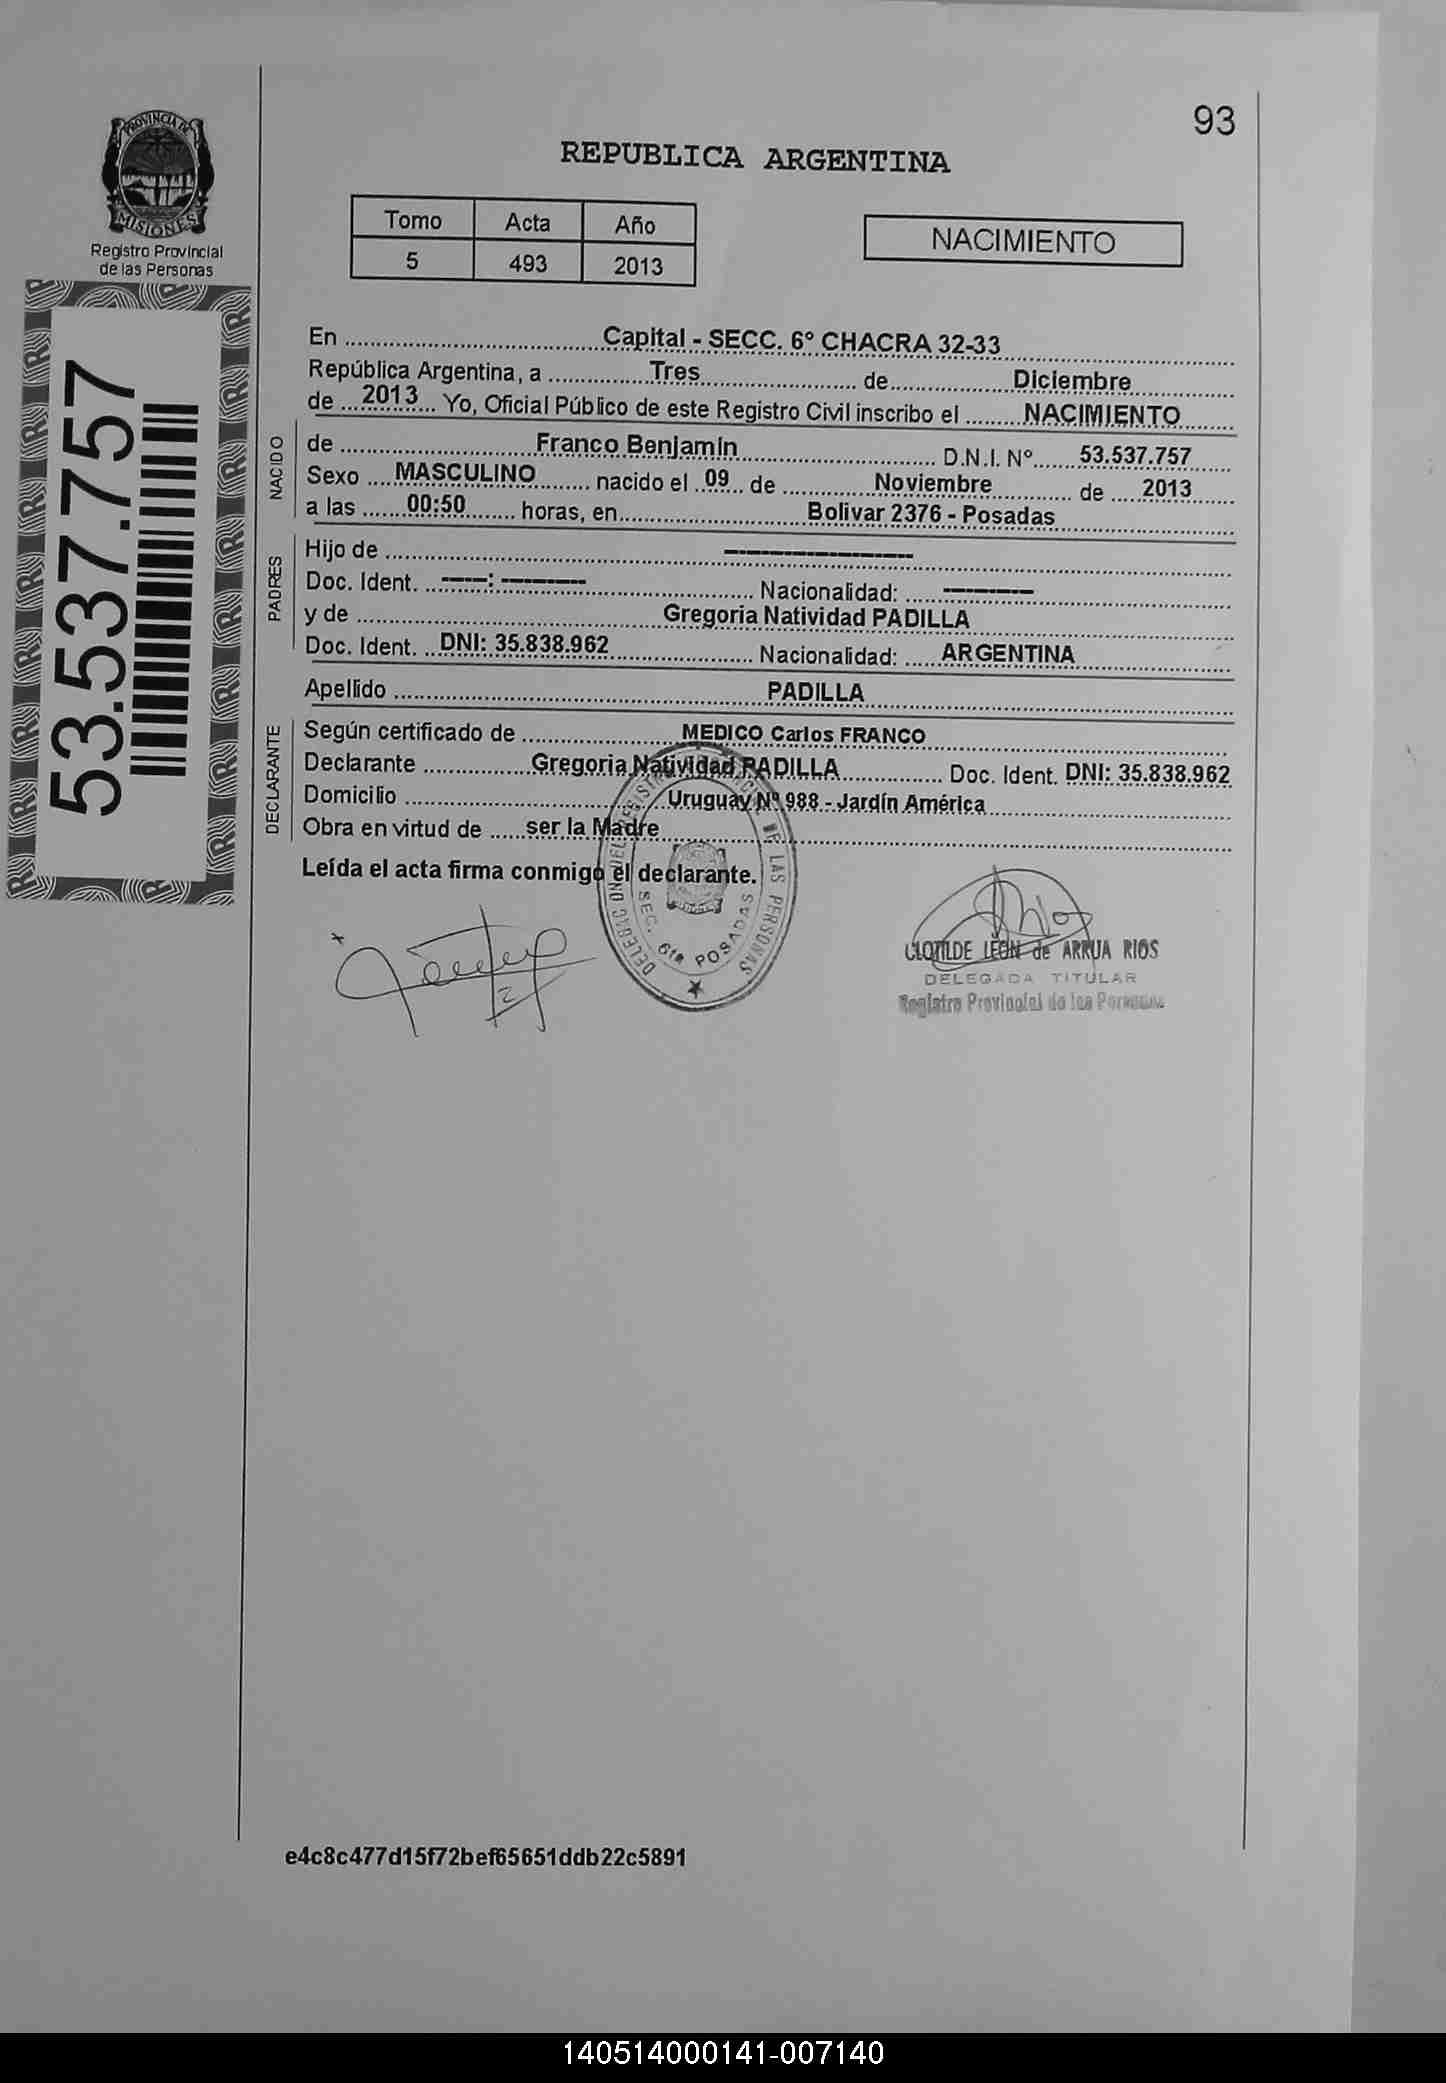 93
PROVINCIA DE
MISIONES
Registro Provincial
de las Personas
REPUBLICA ARGENTINA
Tomo Acta Año
5 493 2013
NACIMIENTO
53.537.757
En Capital - SECC. 6º CHACRA 32-33
República Argentina, a Tres de Diciembre
de 2013 Yo, Oficial Público de este Registro Civil inscribo el NACIMIENTO
NACIDO
de Franco Benjamín D.N.I. Nº 53.537.757
Sexo MASCULINO nacido el 09 de Noviembre de 2013
a las 00:50 horas, en Bolivar 2376 - Posadas
PADRES
Hijo de --------------------
Doc. Ident. -----: --------- Nacionalidad: ----------
y de Gregoria Natividad PADILLA
Doc. Ident. DNI: 35.838.962 Nacionalidad: ARGENTINA
Apellido PADILLA
DECLARANTE
Según certificado de MEDICO Carlos FRANCO
Declarante Gregoria Natividad PADILLA Doc. Ident. DNI: 35.838.962
Domicilio Uruguay Nº 988 - Jardín América
Obra en virtud de ser la Madre
Leída el acta firma conmigo el declarante.
DE LAS PERSONAS
SEC. 6ta POSADAS
CLOTILDE LEON de ARRUA RIOS
DELEGADA TITULAR
Registro Provincial de las Personas
e4c8c477d15f72bef65651ddb22c5891
140514000141-007140